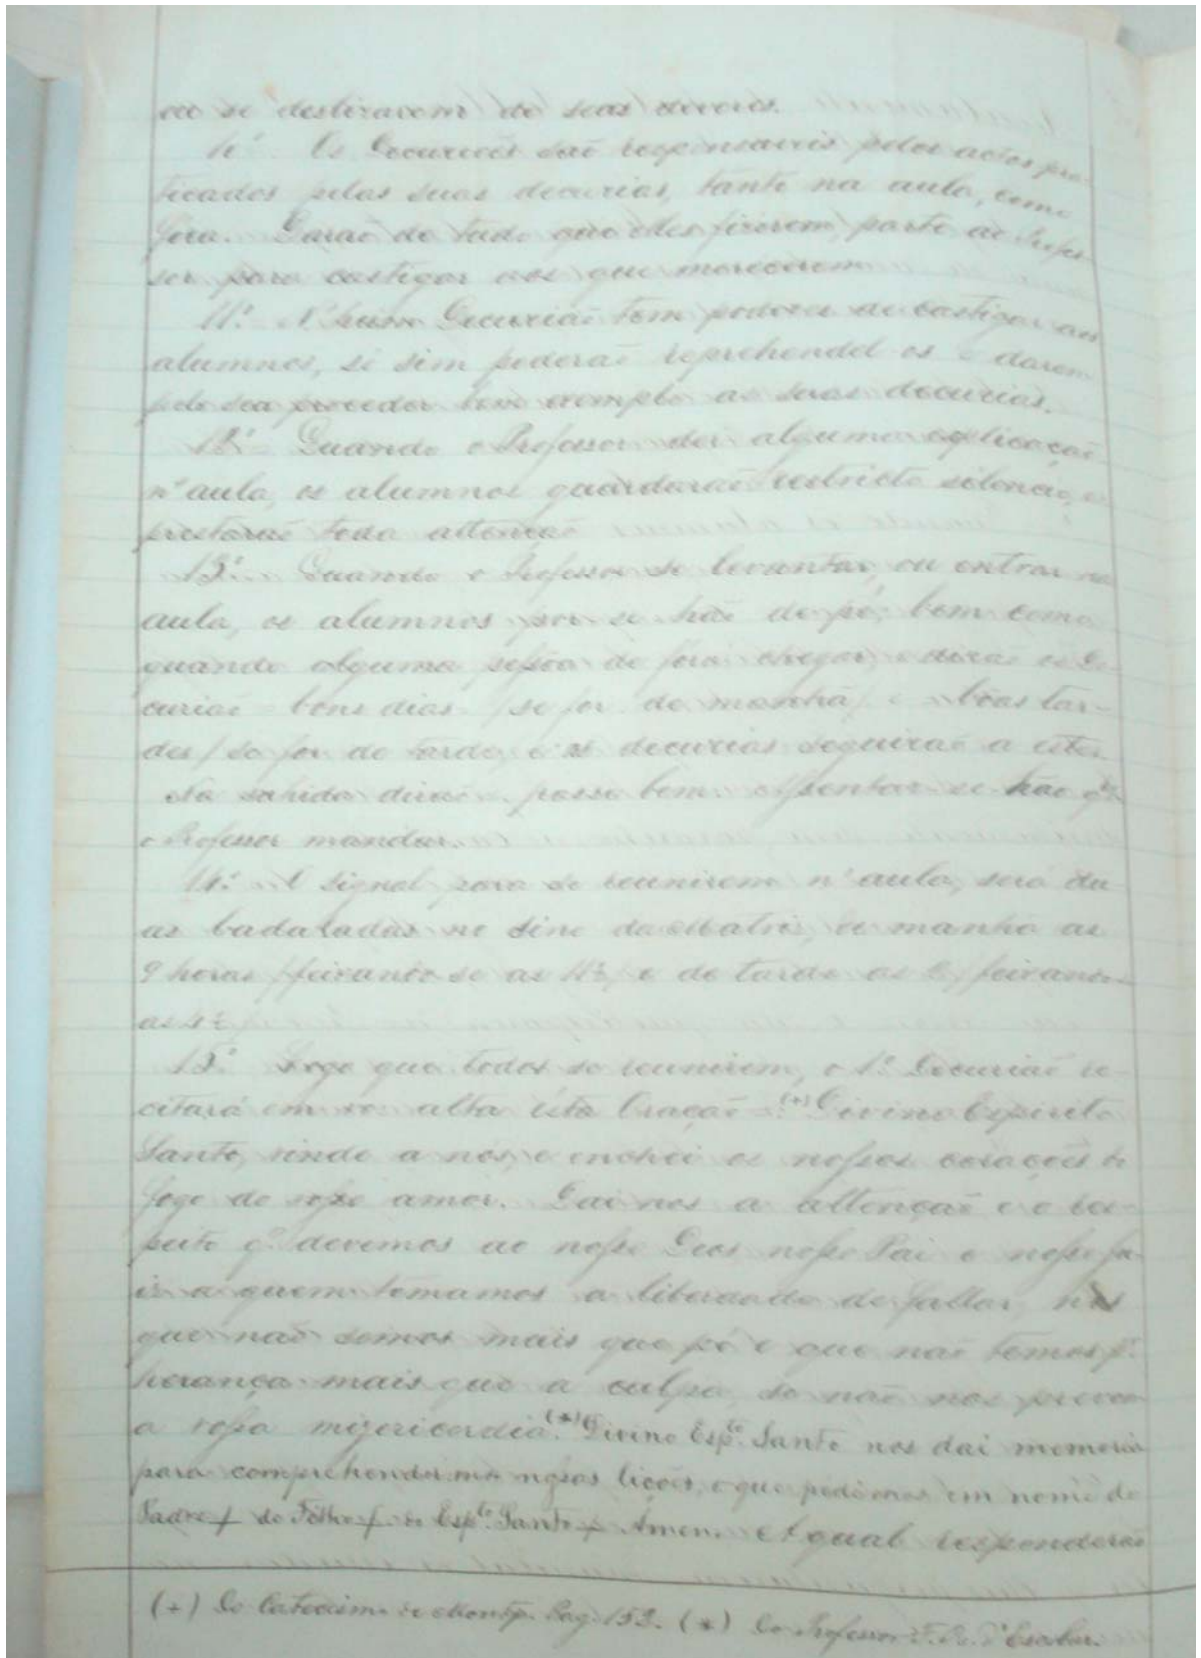 ou se deslizarem de seos deveres.
Os Decuriões são responsaveis pelos actos pra-
ticados pelas suas decurias, tanto na aula, como
fóra. Darão de tudo que elles fizerem parte ao Profes-
sor para castigar aos que merecerem
11.º N'hum Decurião tem poderes de castigar aos
alumnos, si sim poderão reprehendel os e darem
pelo seu proceder bom exemplo as suas decurias.
12.º Quando o Professor der alguma explicação
n'aula, os alumnos guardarão restricto silencio, e
prestarão toda attenção
13.º Quando o Professor se levantar, ou entrar na
aula, os alumnos por se hão de pé, bem como
quando alguma pessoa de fora chegar, e dirão os De-
curião bons dias /se for de manhã/ e bôas tar-
des /se for de tarde, e as decurias seguirão a
sahida dirão passe bem. Assentar se hão qdo
o Professor mandar.
14.º O signal para se reunirem n'aula, será du-
as badaladas no sino da Matriz, de manhã as
9 horas /feixando se as 11½/ e de tarde as 2 /feixando
as 4½/
15.º Logo que todos se reunirem, o 1.º Decurião re-
citará em voz alta esta Oração (+) Divino Espirito
Santo, vinde a nós, e enchei os nossos corações do
fogo do vosso amor. Dai nos a attenção e o res-
peito q. devemos ao nosso Deos, nosso Pai e nosso Ju-
iz a quem tomamos a liberdade de fallar, nós
que não somos mais que pó e que não temos p.r
herança mais que a culpa, se não nos
a vossa misericordia. (*) Divino Esp.to Santo nos dai memoria
para comprehendermos nossas lições, o que pedimos em nome do
Padre + do Filho + do Esp.to Santo + Amen. A qual responderão
(+) Do Catecismo de Montp. Pag. 153. (*) Do Professor